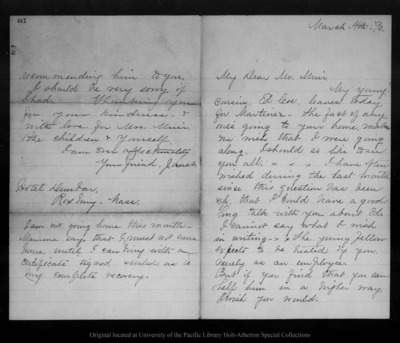 March 4th, 90
My Dear Mr. Muir
My young
cousin, Ed Coe, leaves today
for Martinez. The fact of any
one going to your home, makes
me wish that I were going
along. I should so like to see
you all. I have often
wished during the last month
since this question has been
up, that I could have a good
long talk with you about Ed.
I cannot say what I wish
in writing. The young fellow
expects to be treated by you
merely as an employee.
But if you find that you can
help him in a higher way
I wish you would.
recommending him to you,
I should be very sorry if
I had. Thanking you
for your kindness &
with love for Mrs. Muir,
the children & yourself
I am affectionately
Your friend, Janet
Hotel Dundar,
Roxbury. Mass.
I am not going home this month.
Mamma says that I must not come
home until I can bring with me
certificate signed & sealed as to
my complete recovery.
Original located at University of the Pacific Library Holt-Atherton Special Collections